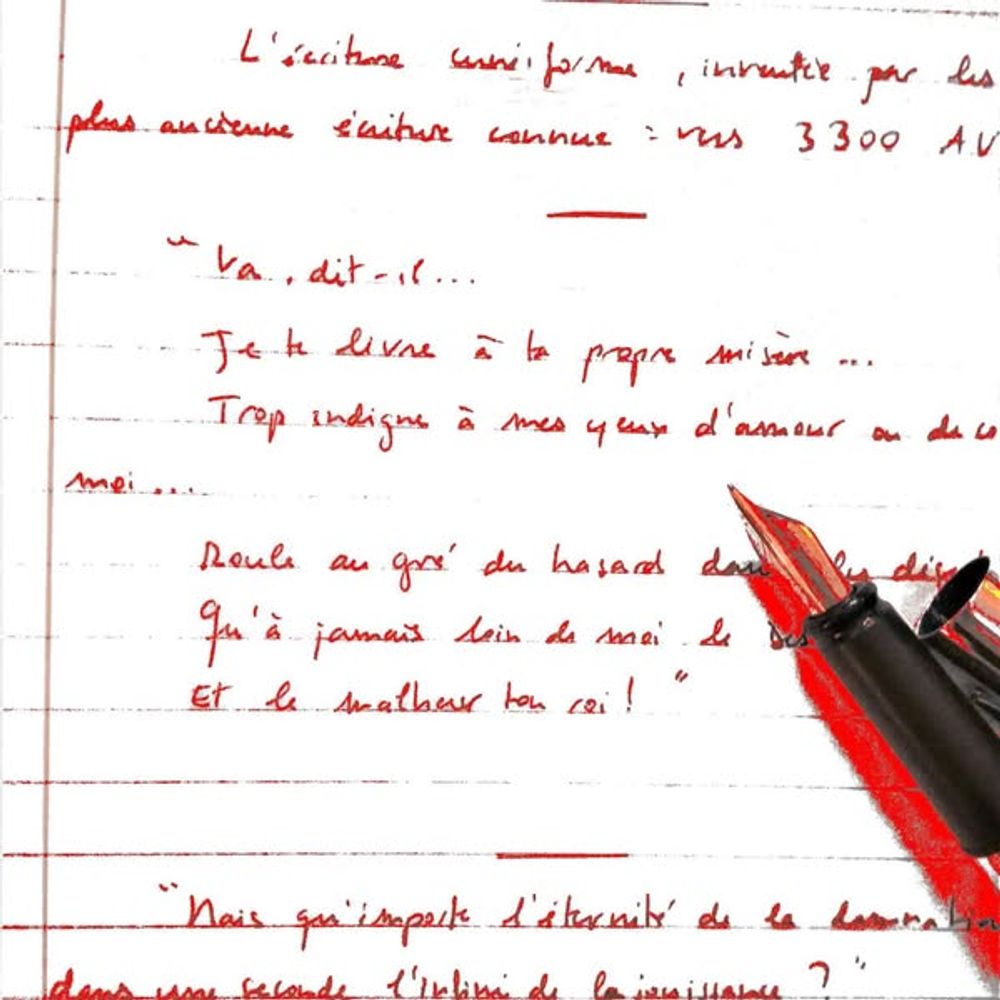 L'écriture cunéiforme, inventée par les
plus ancienne écriture connue : vers 3300 AV
"Va, dit-il...
Je te livre à ta propre misère ...
Trop indigne à mes yeux d'amour ou de co
moi ...
Roule au gré du hasard dans les dés
Qu'à jamais loin de moi le des
Et le malheur ton roi ! "
"Mais qu'importe l'éternité de la damnation
dans une seconde l'infini de la jouissance ? "